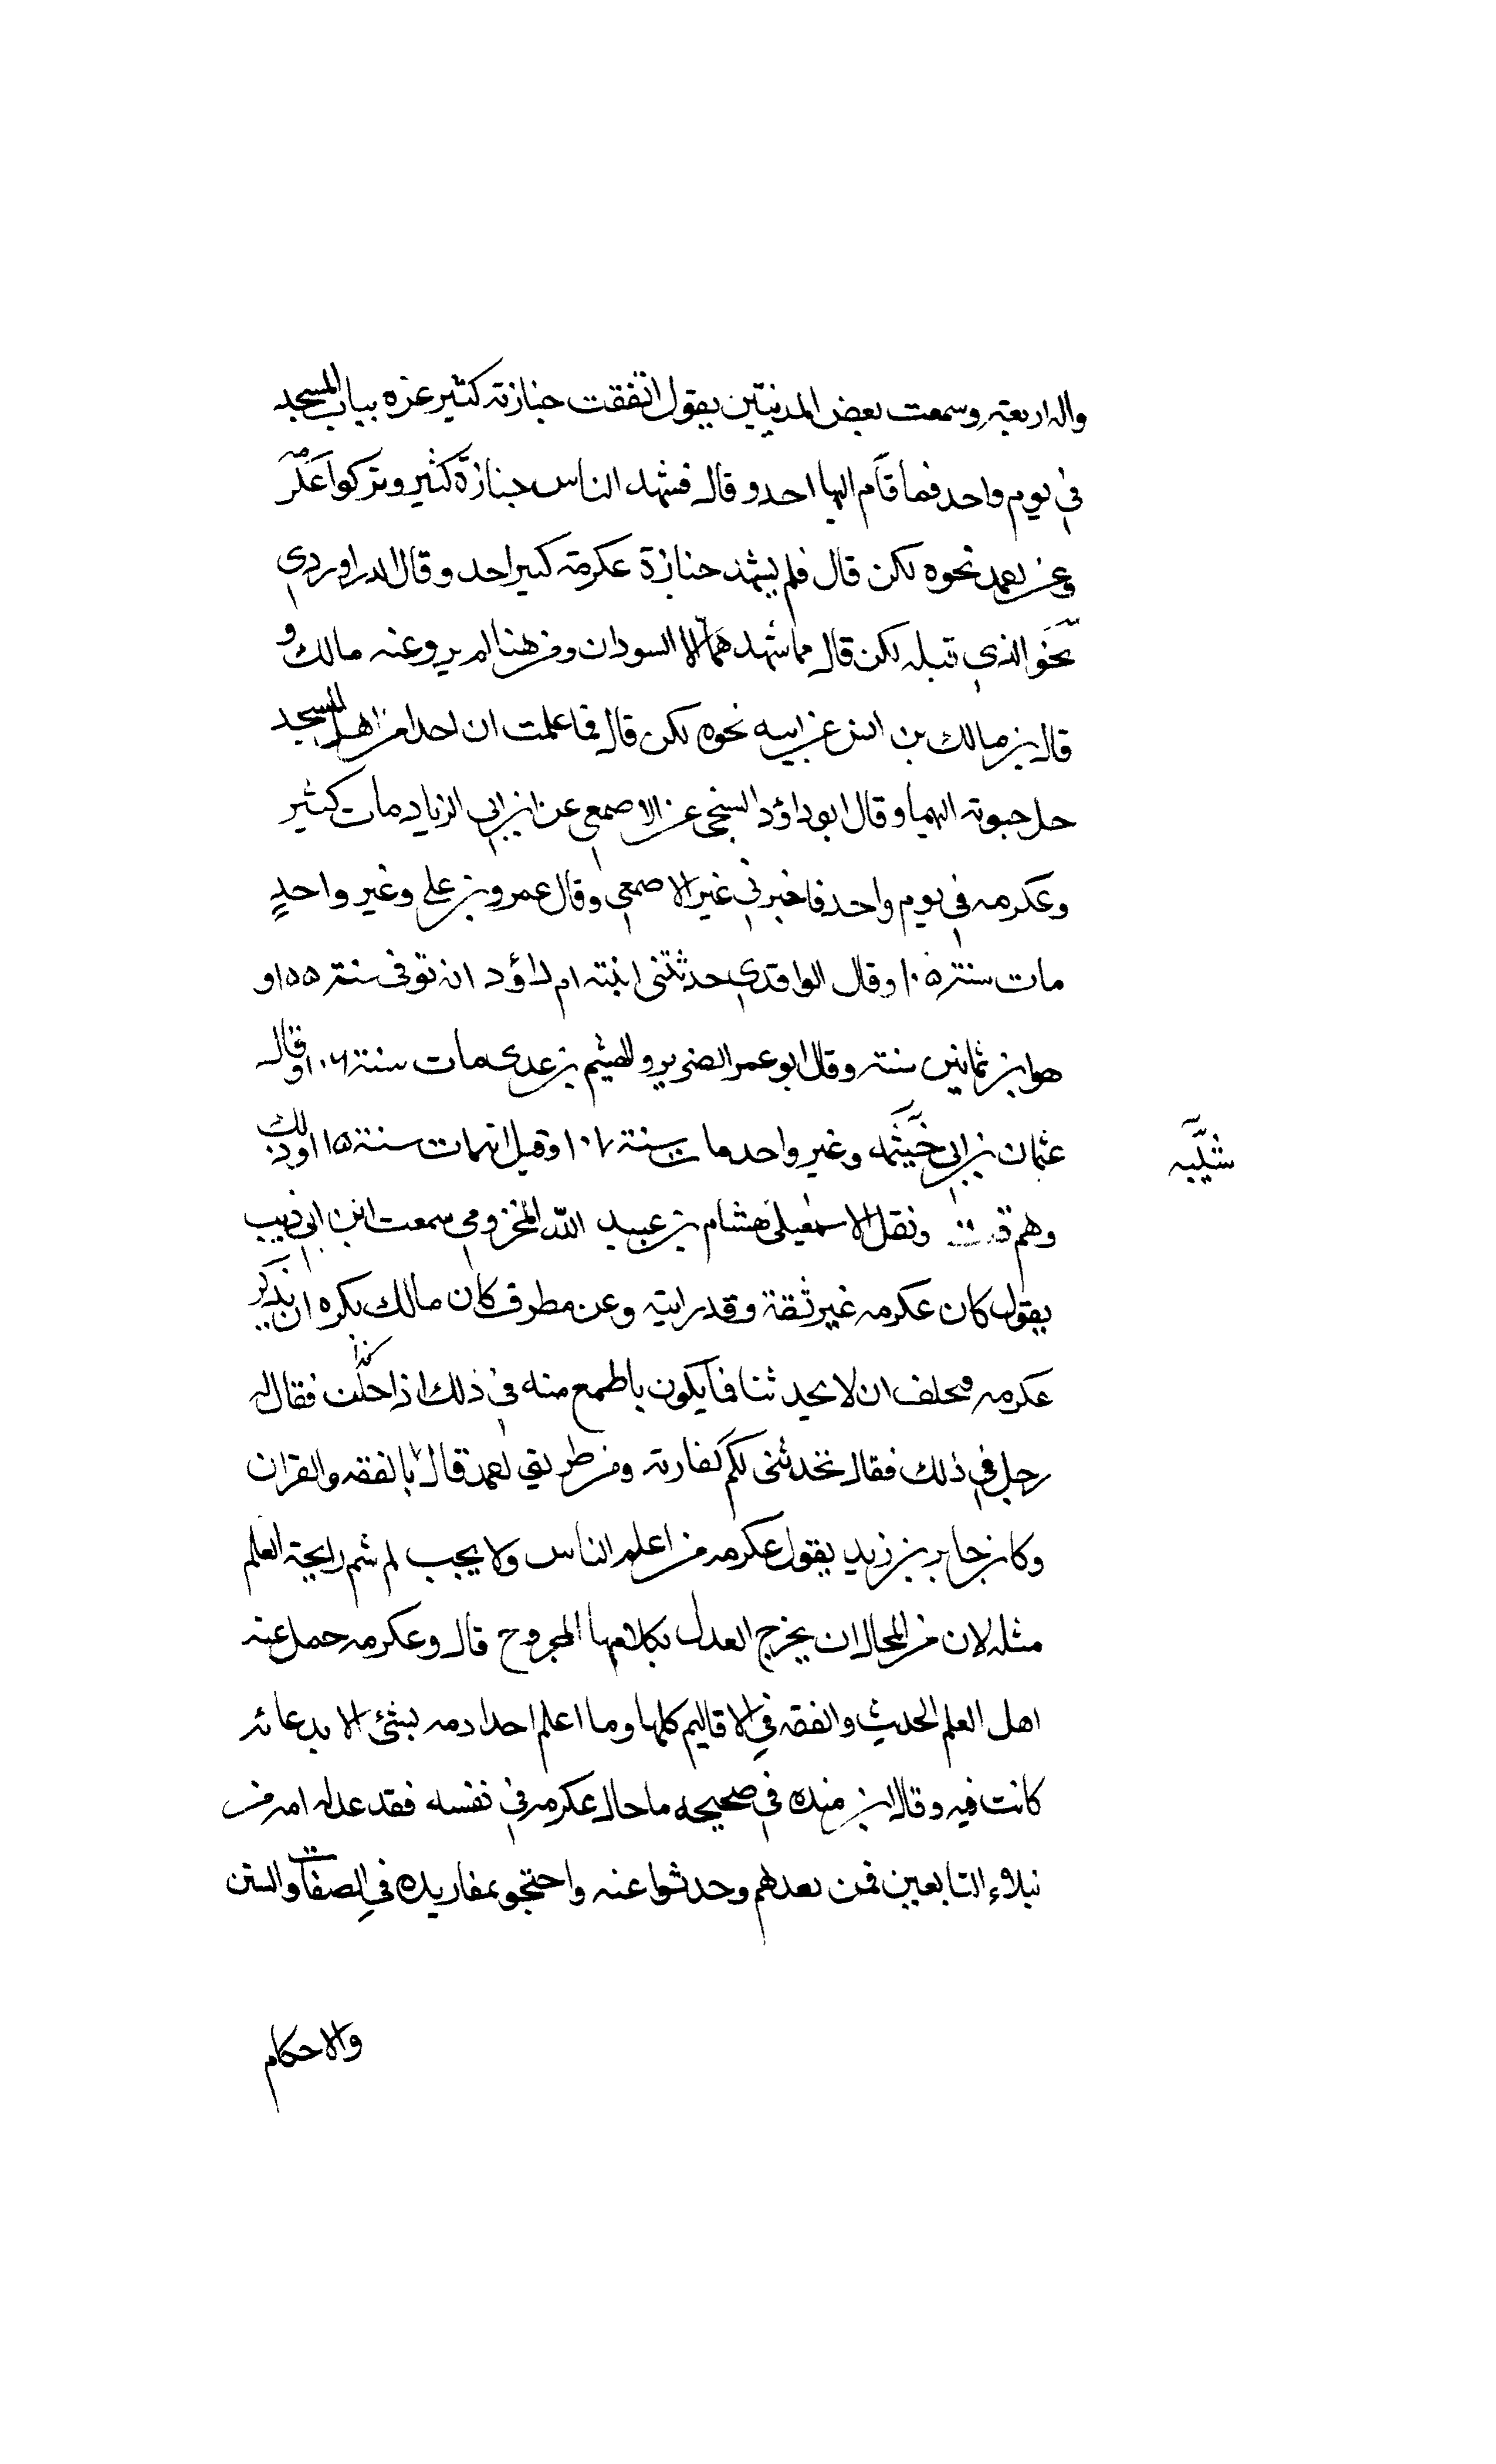 والاربعة وسمعت بعض المدنيين يقول اتفقت جنازته كثير عزه بباب المسجد
في يوم واحد فما قام اليها احد وقال فشهد الناس جنازة كثير وتركوا عكرمه
وعن احمد نحوه لكن قال فلم يشهد جنازة عكرمة كبير احد وقال الدراوردي
نحو الذي قبله لكن قال مما شهدهما الا السودان ومن هنا لم يرو عنه مالك و
قال بن مالك بن انس عن ابيه نحوه لكن قال فما علمت ان احدا من اهل المسجد
حل حبوته اليهما وقال ابو داؤد السنجي عن الاصمعي عن ابن ابي الزناد مات كثير
وعكرمه في يوم واحد فاخبرني غير الاصمعي وقال عمرو بن علي وغير واحدٍ
مات سنة ١٠٥ وقال الواقدي حدثتني ابنته ام داؤد انه توفى سنة ١٥٥ و
هو ابن ثمانين سنة وقال ابو عمر الضرير والهيثم بن عدى مات سنة ١٠٦ وقال
عثمان بن ابي خيثمه وغير واحد مات سنة ١٠٧ وقيل انه مات سنة ١١٥ وذلك
شيبه
وهم قلت ونقل الاسمعيلي هشام بن عبيد الله المخزومي سمعت ابن ابي ذيب
يقول كان عكرمه غير ثقة وقد رايته وعن مطرف كان مالك يكره ان يذكر
عكرمه ويحلف ان لا يحدثنا فما يكون باطمع منه في ذلك اذا حلف فقال له
رجل في ذلك فقال تحدثني لكم كفارته ومن طريق احمد قال بالفقه والقران
وكان جابر بن زيد يقول عكرمه من اعلم الناس ولا يجب لم شم رايحة العلم
مثله لان من المحال ان يخرج العدل بكلامها المجروح قال وعكرمه حمل عنه
اهل العلم الحديث والفقه في الاقاليم كلها وما اعلم احدا ذمه بشئ الا بدعائه
كانت فيه وقال ابن منده في صحيحه ما حال عكرمه في نفسه فقد عدله امه من
نبلاء التابعين فمن بعدهم وحدثوا عنه واحتجو بمفاريده في الصفات والسنن
والاحكام